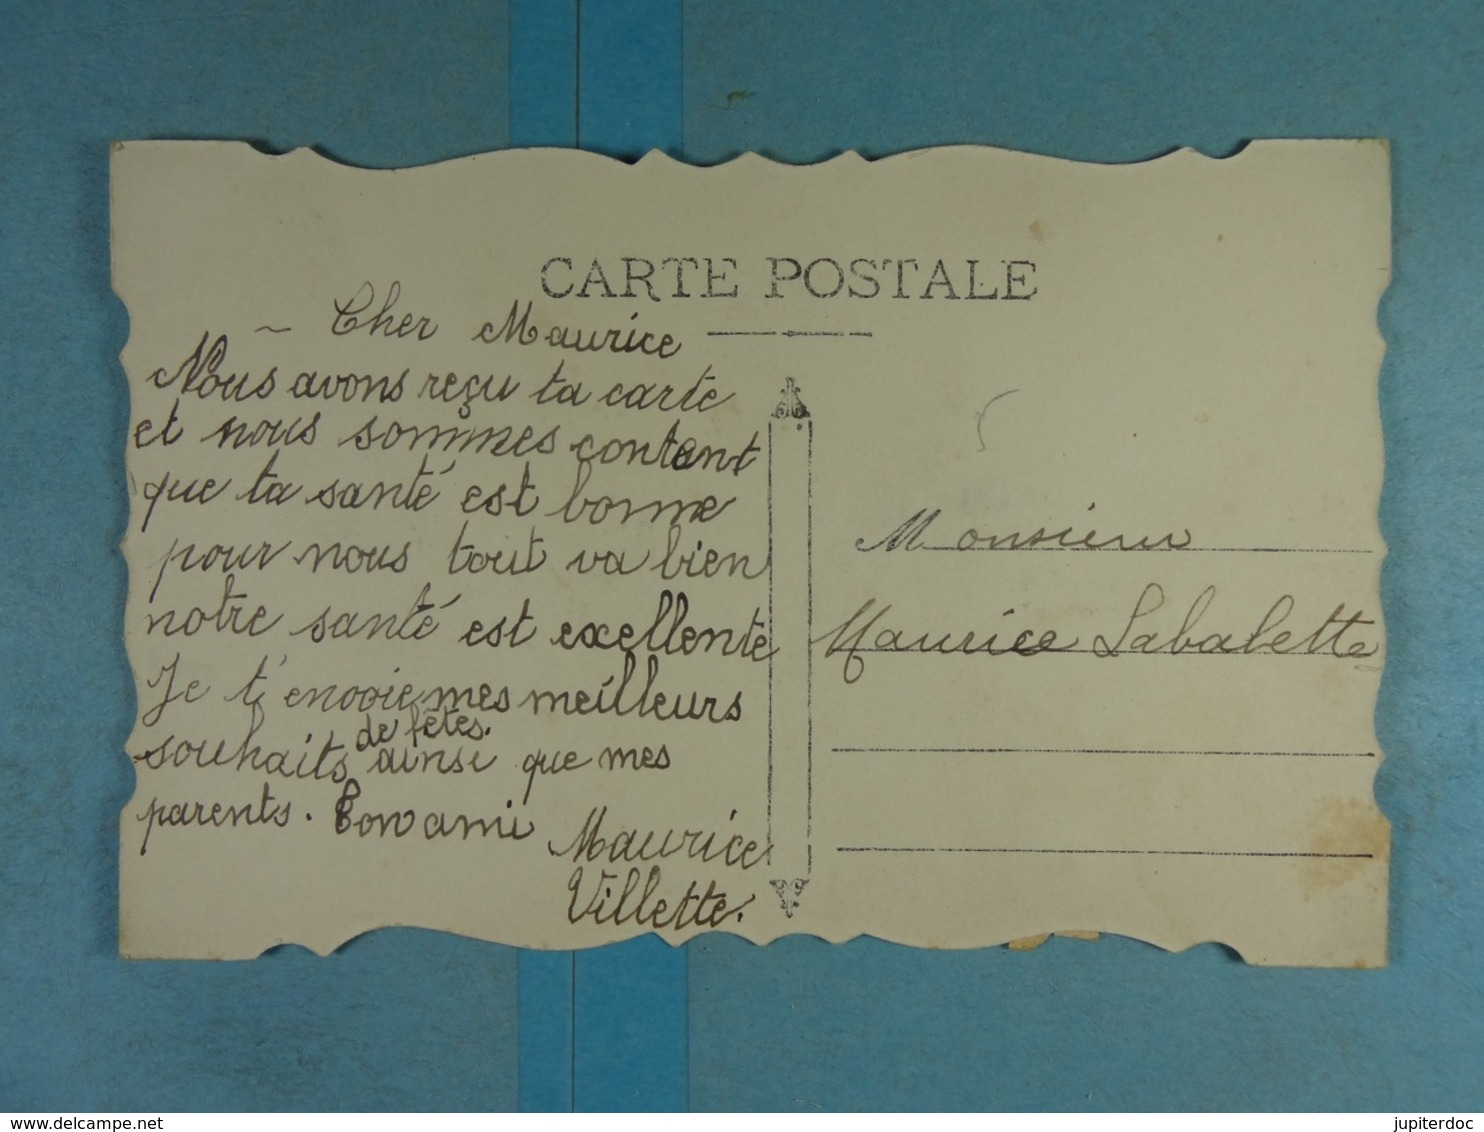 CARTE POSTALE
~ Cher Maurice
Nous avons reçu ta carte
et nous sommes content
que ta santé est bonne
pour nous tout va bien
notre santé est excellente
Je t'envoie mes meilleurs
souhaits de fêtes. ainsi que mes
parents. Ton ami
Maurice
Villette.
5
Monsieur
Maurice Labalette
delcampe.net
jupiterdoc